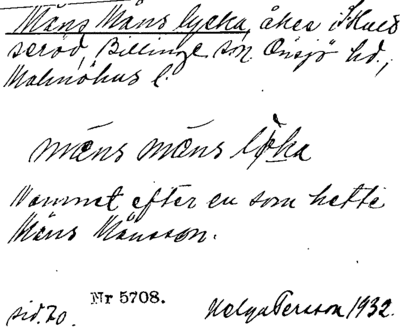 Måns Måns lycka, åker i Hulö
seröd, Billinge sn. Onsjö hd.,
Malmöhus l.
måns måns löka
Namnet efter en som hette
Måns Månsson.
sid. 20. Nr 5708. Helga Persson 1932.